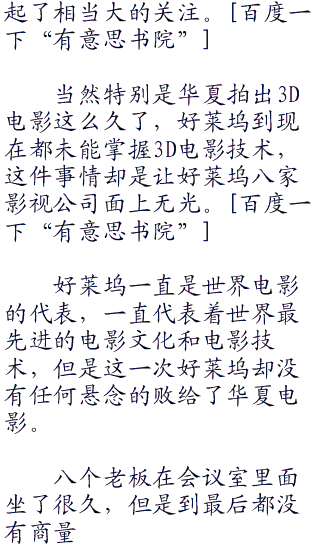 起了相当大的关注。[百度一
下“有意思书院”]
当然特别是华夏拍出3D
电影这么久了，好莱坞到现
在都未能掌握3D电影技术，
这件事情却是让好莱坞八家
影视公司面上无光。[百度一
下“有意思书院”]
好莱坞一直是世界电影
的代表，一直代表着世界最
先进的电影文化和电影技
术，但是这一次好莱坞却没
有任何悬念的败给了华夏电
影。
八个老板在会议室里面
坐了很久，但是到最后都没
有商量